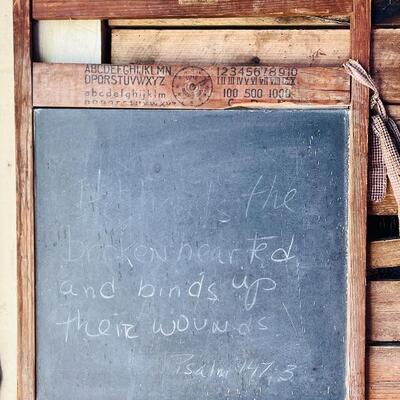 ABCDEFGHIJKLMN
OPQRSTUVWXYZ
abcdefghijklm
1 2 3 4 5 6 7 8 9 10
I II III IV V VI VII VIII IX X
100 500 1000
C D M
He heals the
brokenhearted
and binds up
their wounds
Psalm 147:3